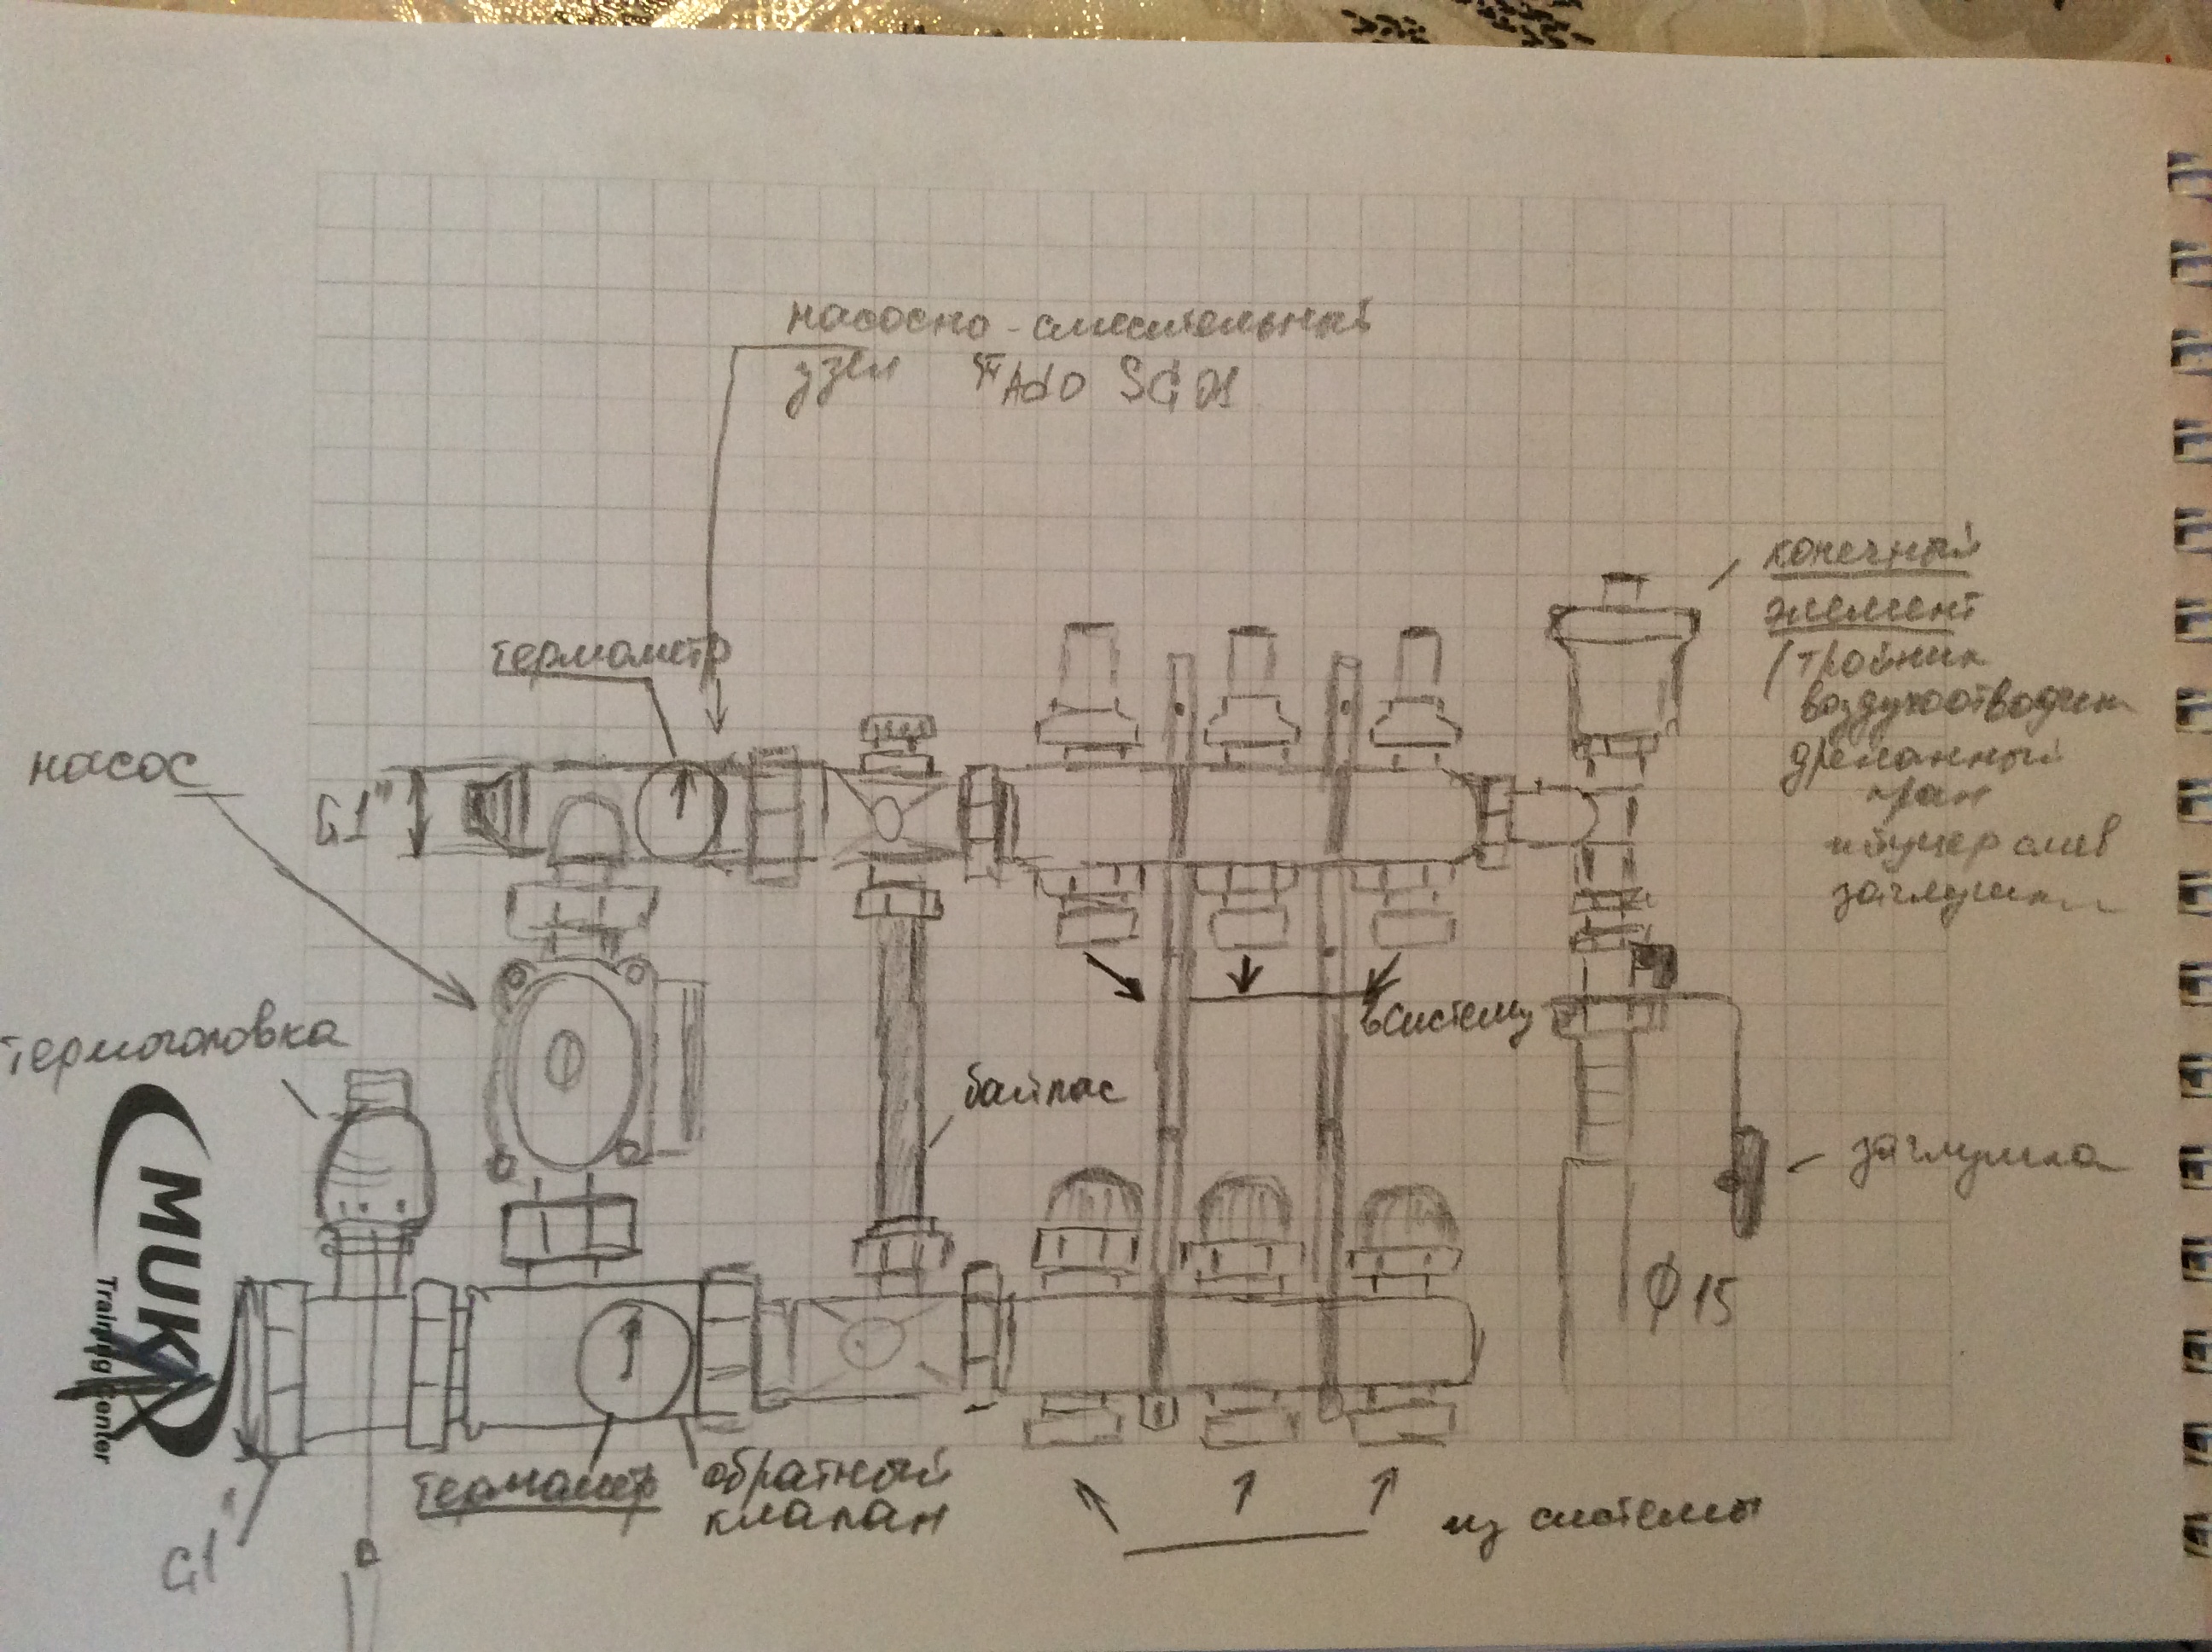 насосно-смесительный
узел FAdO SG21
термометр
насос
G1"
термоголовка
конечный
элемент
(тройник
воздухоотводчик
дренажный
кран
штуцер слив
заглушка
в систему
байпас
заглушка
Ф 15
MUK
Training Center
термометр
обратный
клапан
из системы
G1"